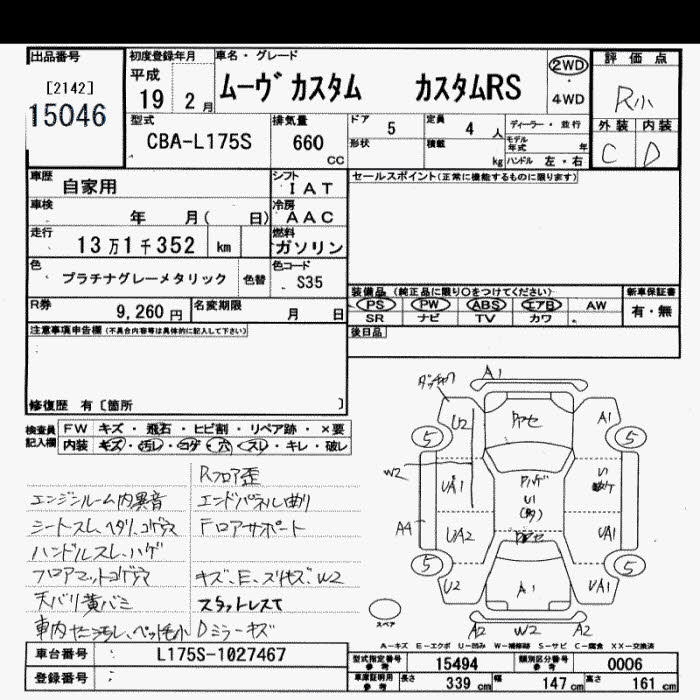 出品番号 初度登録年月 車名・グレード 評価点
[2142] 平成 ムーヴカスタム カスタムRS 2WD
15046 19 2月 4WD R小
型式 排気量 ドア 5 定員 4人 ディーラー・並行 外装 内装
CBA-L175S 660 CC 形状 積載 kg モデル年式 年 ハンドル 左・右 C D
車歴 自家用 シフト IAT セールスポイント(正常に機能するものに限ります)
車検 年 月( 日) 冷房 AAC
走行 13万1千352 km 燃料 ガソリン
色 プラチナグレーメタリック 色替 色コード S35
装備品 (純正品に限り○をつけてください) 新車保証書
R券 9,260円 名変期限 月 日 PS PW ABS エアB AW 有・無
SR ナビ TV カワ
注意事項申告欄(不具合内容等は具体的に記入して下さい) 後日品
修復歴 有〔箇所 〕
検査員記入欄 FW キズ・飛石・ヒビ割・リペア跡・×要
内装 キズ・汚レ・コゲ・穴・スレ・キレ・破レ
Rフロア歪
エンジンルーム内異音 エンドパネル曲り
シートスレ、ヘタリ、コゲ穴 Fロアサポート
ハンドルスレ、ハゲ
フロアマットコゲ穴 キズ、E、スリキズ、W2
天バリ黄バミ スタットレスT
Dミラーキズ
A1
U2 A1
5 5
W2 UA1 U1
A4 UA2 UA1
5 5
U2 A1 UA1
スペア A2 W2 A2
A-キズ E-エクボ U-凹み W-補修跡 S-サビ C-腐食 XX-交換済
車台番号 L175S-1027467 型式指定番号 参考 15494 類別区分番号 参考 0006
登録番号 車庫証明用 参考 長さ 339 cm 幅 147 cm 高さ 161 cm